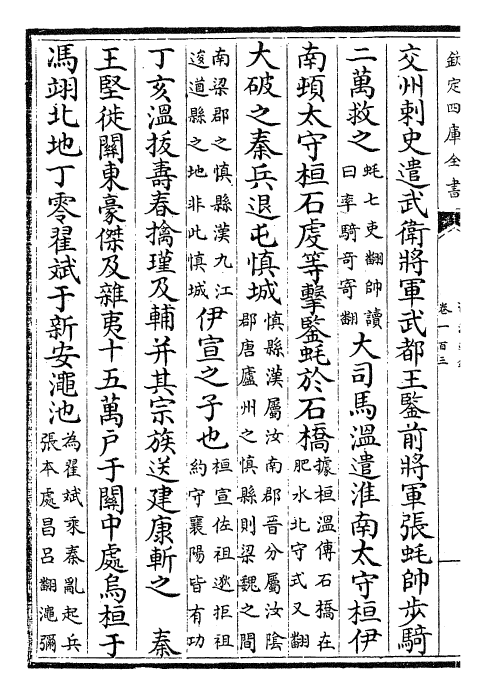 欽定四庫全書
卷一百三
交州刺史遣武衛將軍武都王鑒前將軍張蚝帥步騎
二萬救之蚝七吏翻帥讀曰率騎奇寄翻大司馬溫遣淮南太守桓伊
南頓太守桓石虔等擊鑒蚝於石橋據桓溫傳石橋在肥水北守式又翻
大破之秦兵退屯慎城慎縣漢屬汝南郡晉分屬汝陰郡唐廬州之慎縣則梁魏之間
南梁郡之慎縣漢九江逡道縣之地非此慎城伊宣之子也桓宣佐祖逖拒祖約守襄陽皆有功
丁亥溫拔壽春擒瑾及輔并其宗族送建康斬之 秦
王堅徙關東豪傑及雜夷十五萬户于關中處烏桓于
馮翊北地丁零翟斌于新安澠池為翟斌乘秦亂起兵張本處昌呂翻澠彌